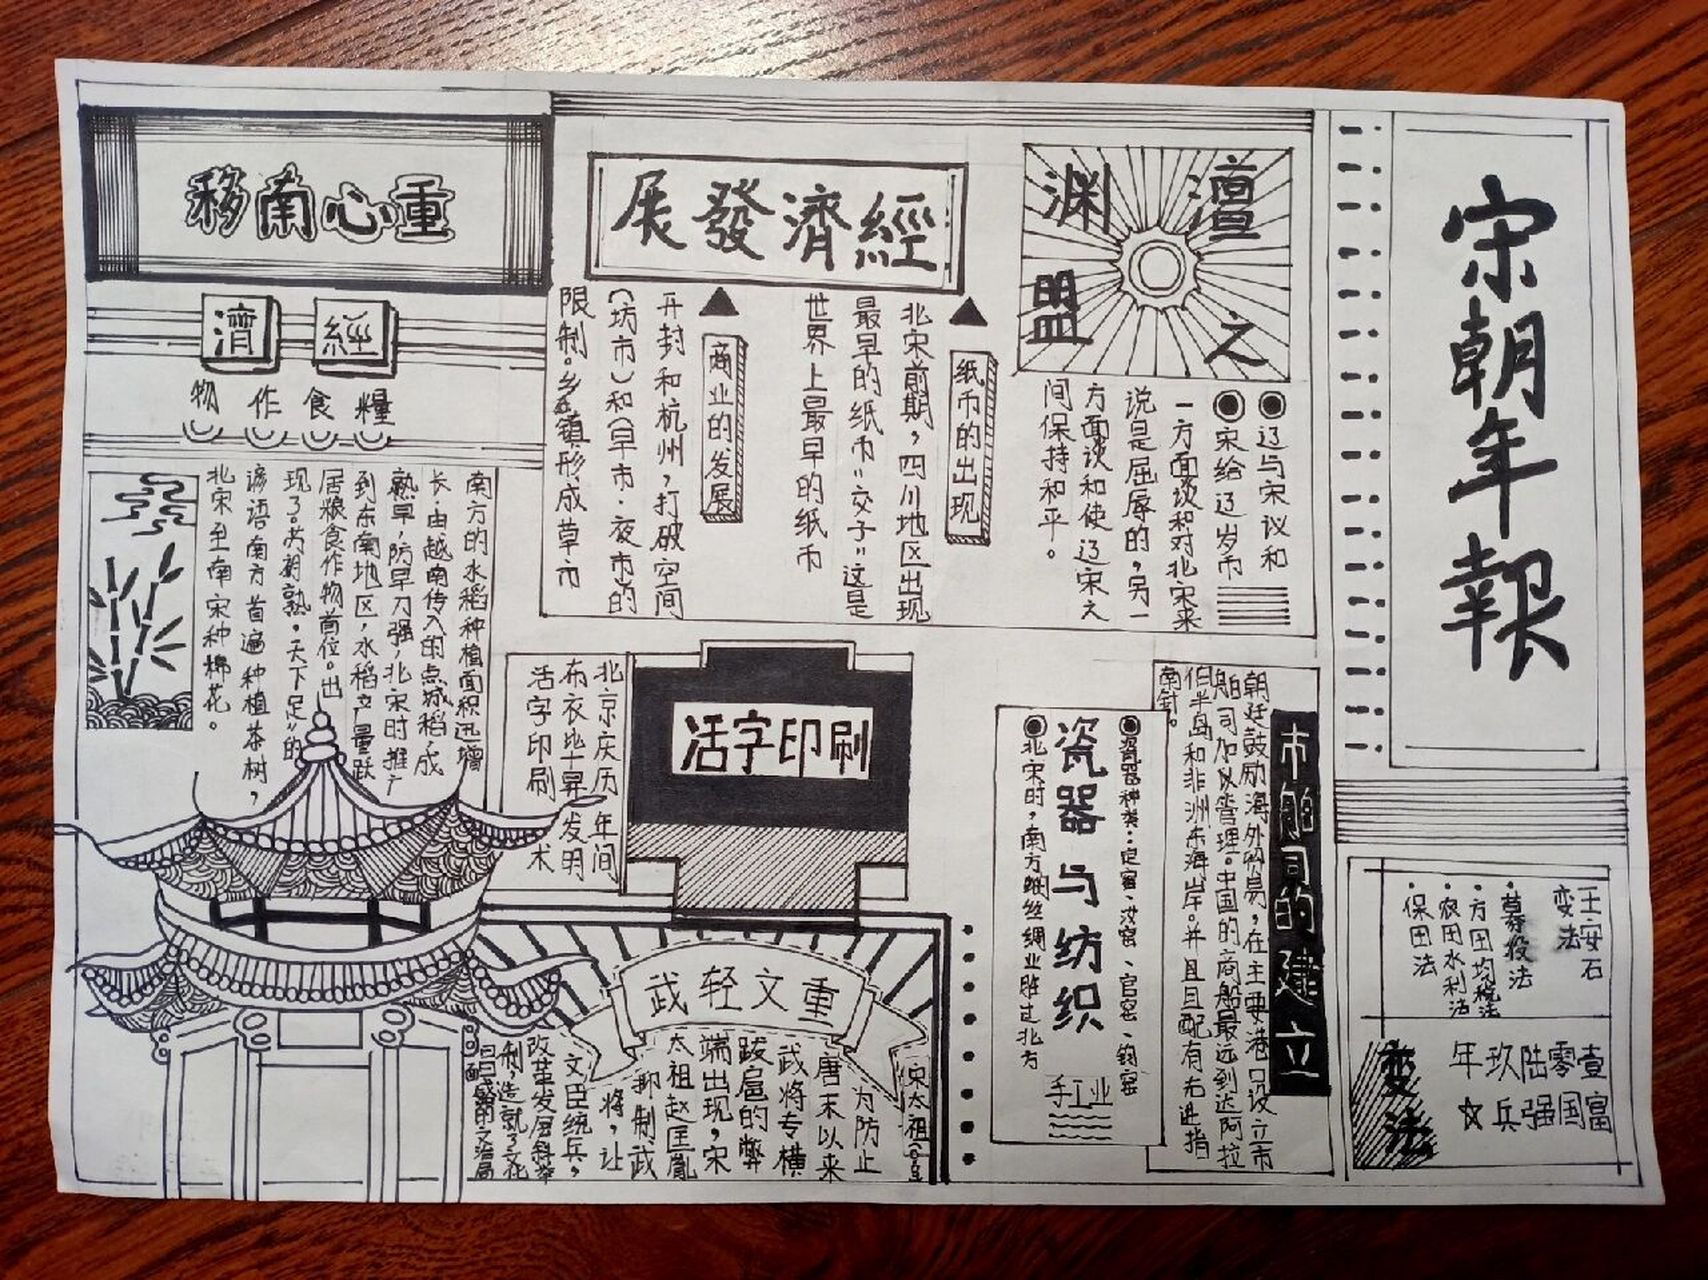 宋朝年報
王安石
变法
·募役法
·方田均税法
·农田水利法
·保田法
壹零陆玖年
富国强兵☆
变法
澶渊之盟
辽与宋议和
宋给辽岁币
一方面谈和对北宋来
说是屈辱的，另一
方面谈和使辽宋之
间保持和平。
經濟發展
纸币的出现
北宋前期，四川地区出现
最早的纸币"交子"这是
世界上最早的纸币
商业的发展
开封和杭州，打破空间
(坊市)和(早市·夜市的
限制。乡镇形成草市
重心南移
經濟
糧食作物
南方的水稻种植面积迅增
长·由越南传入的占城稻，成
熟早，防旱力强，北宋时推广
到东南地区，水稻产量跃
居粮食作物首位。出
现了"苏湖熟，天下足"的
谚语南方首遍种植茶树，
北宋至南宋种棉花。
市舶司的建立
朝廷鼓励海外贸易，在主要港口设立市
舶司加以管理。中国的商船最远到达阿拉
伯半岛和非洲东海岸。并且配有先进指
南针。
瓷器种类：定窑、汝窑、官窑、钧窑
瓷器与纺织
北宋时，南方蚕丝绸业胜过北方
手工业
活字印刷
北京庆历 年间
布衣毕昇发明
活字印刷 术
重文轻武
宋太祖
为防止
唐末以来
武将专横
跋扈的弊
端出现，宋
太祖赵匡胤
抑制武
将，让
文臣统兵，
改革发展科举
制，造就了文化